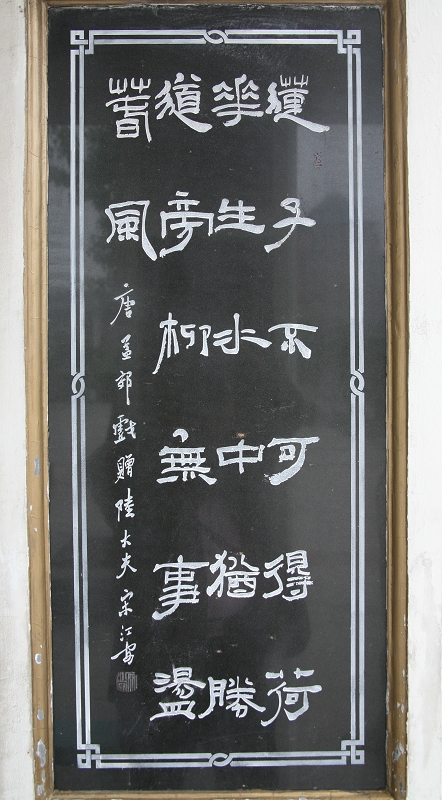 蓮子不可得荷
華生水中猶勝
道旁柳無事盪
萅風
唐孟郊戲贈陸大夫 宋江